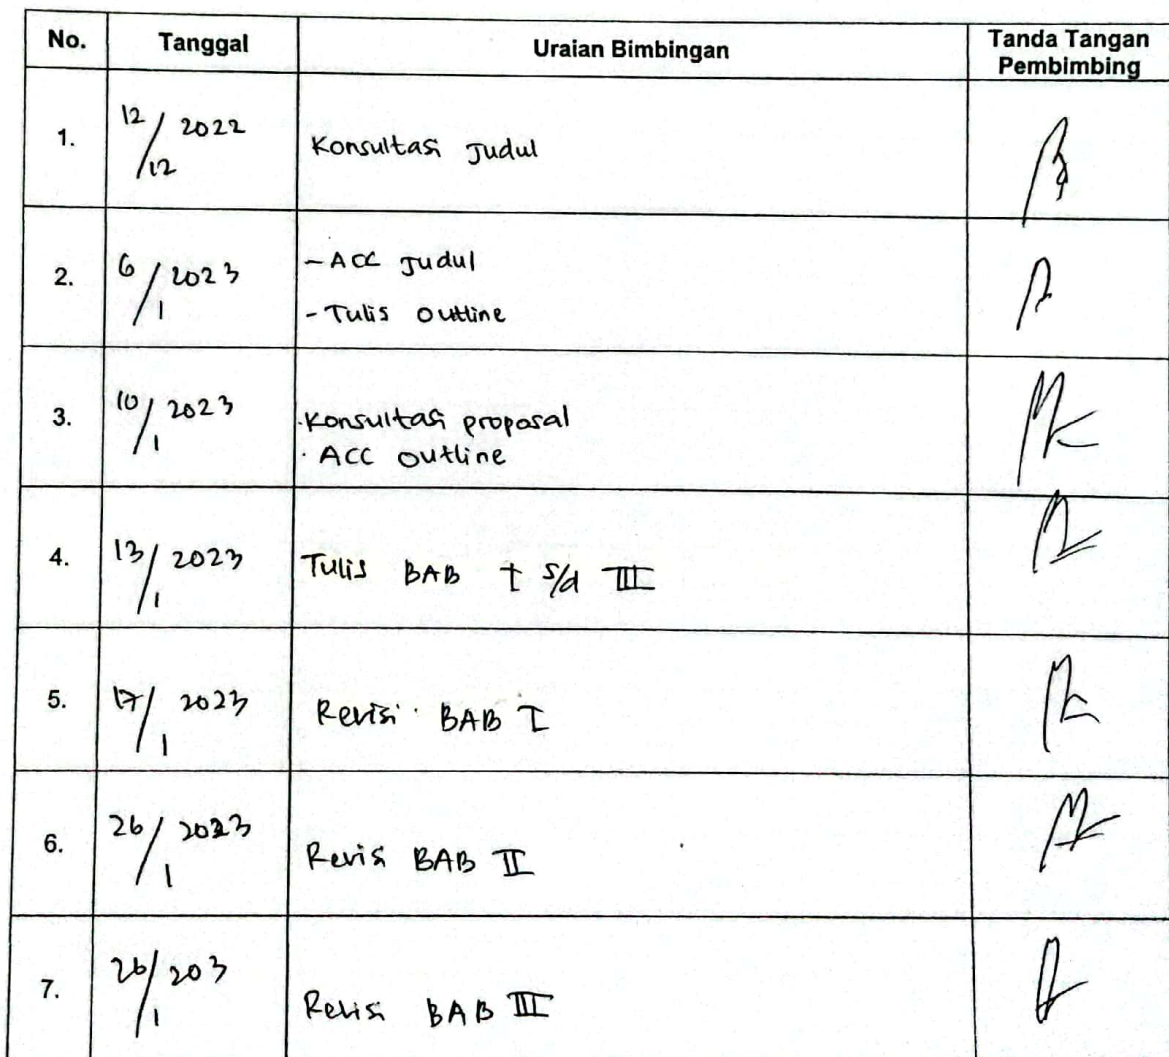 No. Tanggal Uraian Bimbingan Tanda Tangan Pembimbing
1. 12/12 2022 Konsultasi Judul
2. 6/1 2023 - ACC Judul
- Tulis Outline
3. 10/1 2023 · Konsultasi proposal
· ACC Outline
4. 13/1 2023 Tulis BAB I s/d III
5. 17/1 2023 Revisi BAB I
6. 26/1 2023 Revisi BAB II
7. 26/1 203 Revisi BAB III